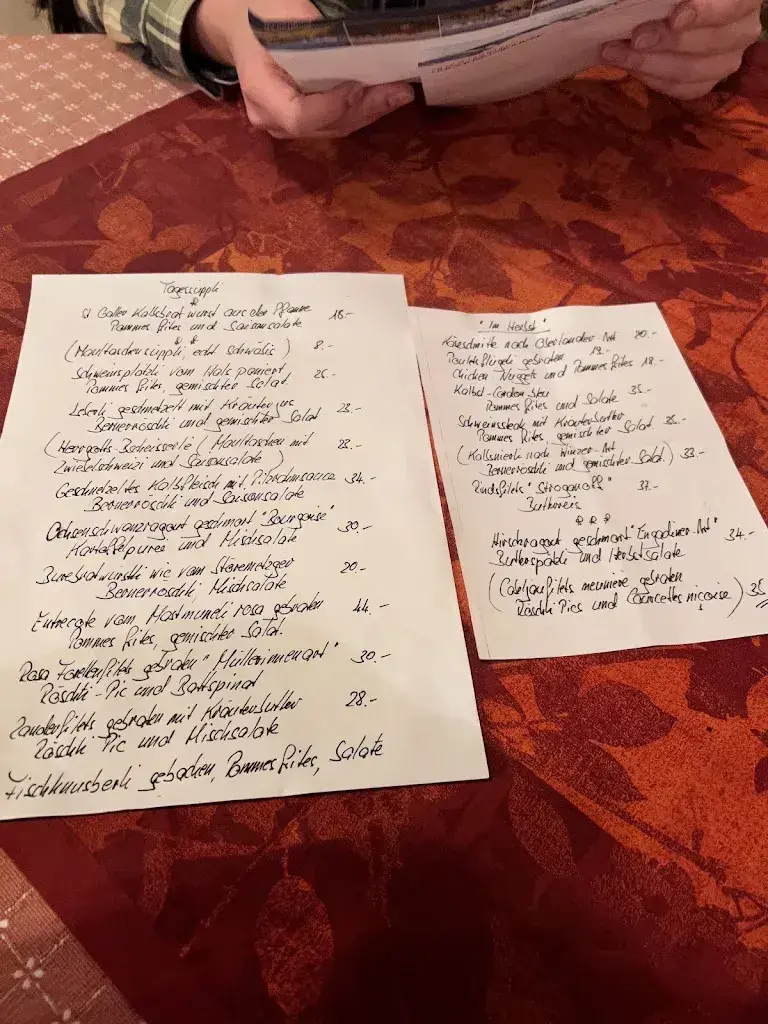 Tagessüppli
St Galler Kalbsbratwurst aus der Pfanne 18.-
Pommes frites und Saisonsalate
(Maultaschensüppli echt schwäbis) 8.-
Schweinsplätzli vom Hals paniert 25.-
Pommes frites, gemischter Salat
Leberli geschnetzelt mit Kräuterjus 23.-
Bernerröschti und gemischter Salat
(Herrgotts-Bscheisserle (Maultaschen mit 23.-
Zwiebelschweizi und Saisonsalate)
Geschnetzeltes Kalbfleisch mit Pilzrahmsauce 34.-
Bernerröschti und Saisonsalate
Ochsenschwanzragout geschmort "Bourgoise" 30.-
Kartoffelpuree und Mischsalate
Burebratwürstli wie vom Störemetzger 20.-
Bernerröschti Mischsalate
Entrecote vom Mastmuneli rosa gebraten 44.-
Pommes frites, gemischter Salat.
Rosa Forellenfilets gebraten "Müllerinnenart" 30.-
Röschti-Pic und Blattspinat
Zanderfilets gebraten mit Kräuterbutter 28.-
Röschti Pic und Mischsalate
Fischknusberli gebacken, Pommes frites, Salate
"Im Herbst"
Käseschnitte nach Oberländer-Art 20.-
Pouletflügeli gebraten 19.-
Chicken Nuggets und Pommes frites 18.-
Kalbs-Cordon bleu 35.-
Pommes frites und Salate
Schweinssteak mit Kräuterbutter
Pommes frites, gemischter Salat.
(Kalbsnierli nach Winzer-Art 33.-
Bernerröschti und gemischter Salat)
Rindsfilets "Stroganoff" 37.-
Butterreis
Hirschragout geschmort "Engadiner-Art" 34.-
Butterspätzli und Herbstsalate
(Cabeljaufilets meunière gebraten 35
Röschti Pics und Courcettes nicoise)